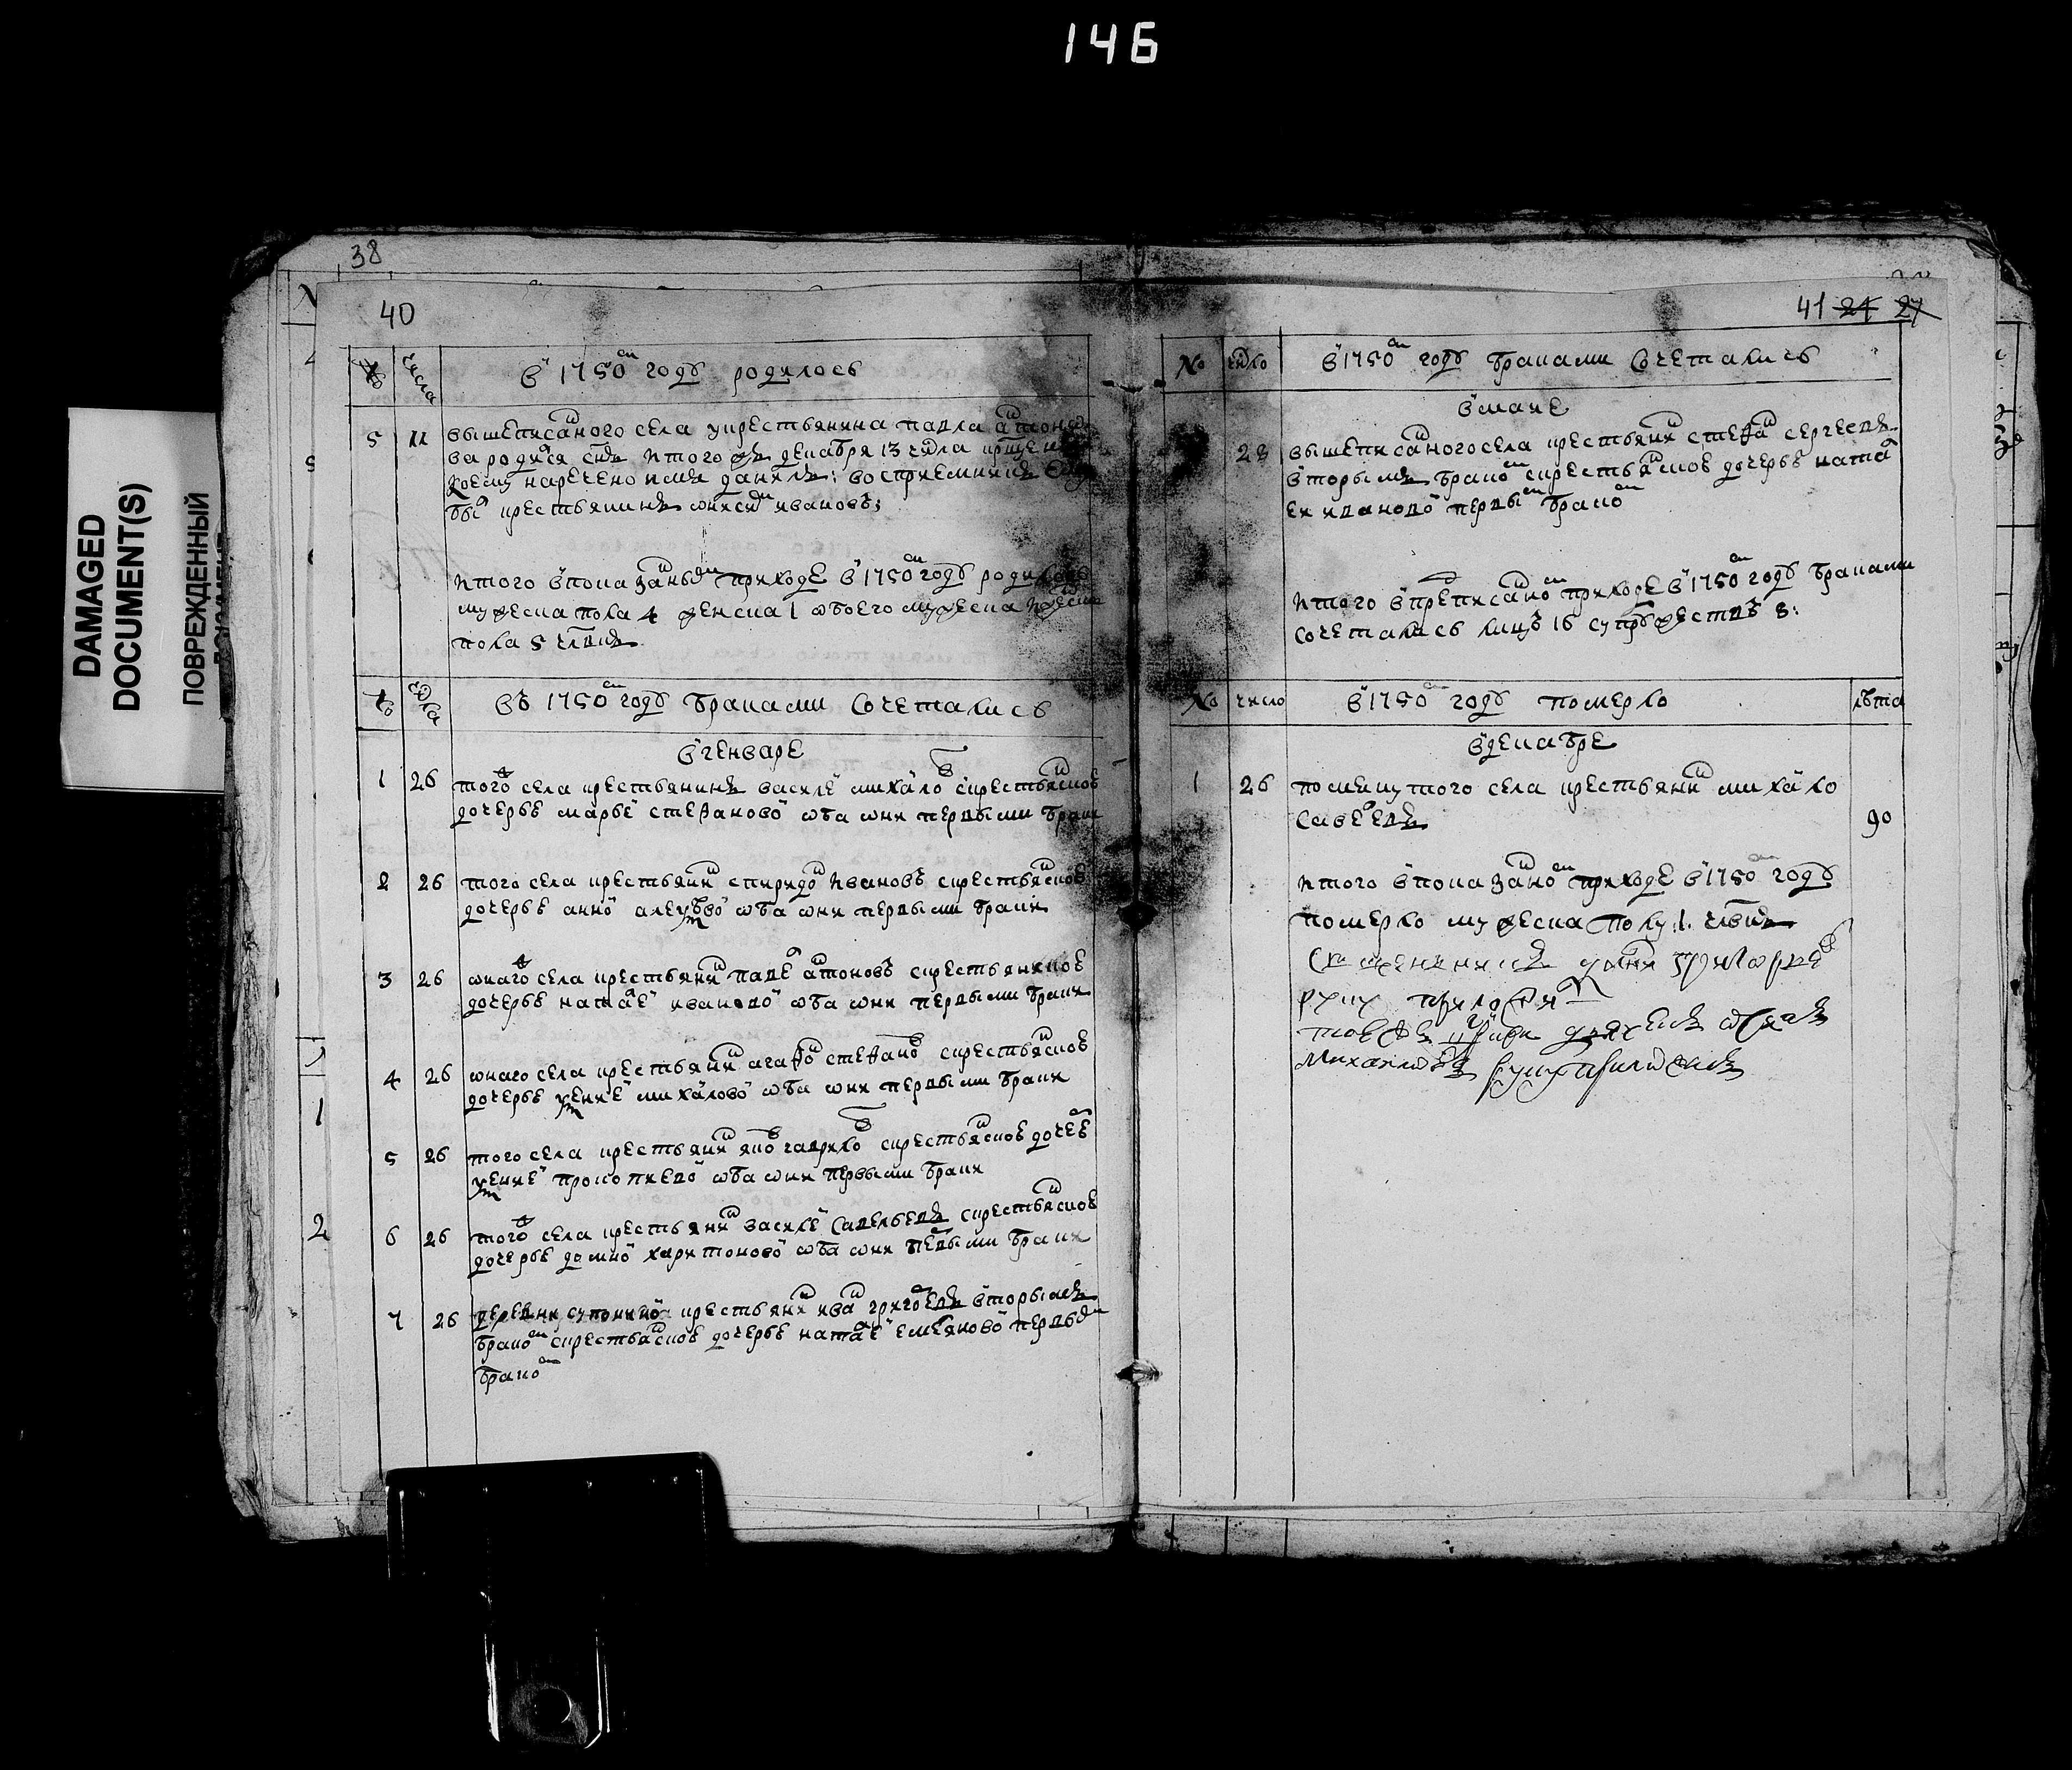 146
DAMAGED
DOCUMENT(S)
ПОВРЕЖДЕННЫЙ
38
40
№ числа в 1750м годѣ родилось
5 11 вышеписанного села у крестьянина павла
ва родися снъ ктого днъ декабря 13 числа крщенъ
коему наречено имя данилъ: восприемникъ
был крестьянинъ ивановъ;
итого впоказанном приходе в 1750м годѣ родилось
мужеска пола 4 женска 1 обоего мужеска и женска
пола 5 члвкъ
№ числа въ 1750м годѣ браками сочетались
в генваре
1 26 того села крестьянинъ василей михайлов скрестьянской
дочерью марьей стефановой оба они первыми браки
2 26 того села крестьянин спиридон ивановъ скрестьянской
дочерью анной оба они первыми браки
3 26 онаго села крестьянин павел антоновъ скрестьянской
дочерью натальей ивановой оба они первыми браки
4 26 онаго села крестьянин агафон стефанов скрестьянской
дочерью устиньей михайловой оба они первыми браки
5 26 того села крестьянин яков гаврилов скрестьянской дочерью
устиньей прокопиевой оба они первыми браки
6 26 того села крестьянин василей савельевъ скрестьянской
дочерью домной харитоновой оба они первыми браки
7 26 деревни крестьянин иван григорьевъ вторымъ
браком скрестьянской дочерью натальей емельяновой первым
браком
41 24 27
№ число в 1750м годѣ браками сочетались
в маие
8 28 вышеписанного села крестьянин стефан сергеевъ
вторымъ браком скрестьянской дочерью натал
еи ивановой первым браком
итого впреписаном приходе в 1750м годѣ браками
сочетались лицъ 16 супружествъ 8:
№ число в 1750м годѣ померло лѣта
в декабре
1 26 помянутого села крестьянин михайло
савельевъ 90
итого впоказанном приходе в 1750м годѣ
померло мужеска полу 1 члвкъ
Священникъ григорьев
руку приложил
тоежъ церкви
Михайловъ руку приложилъ